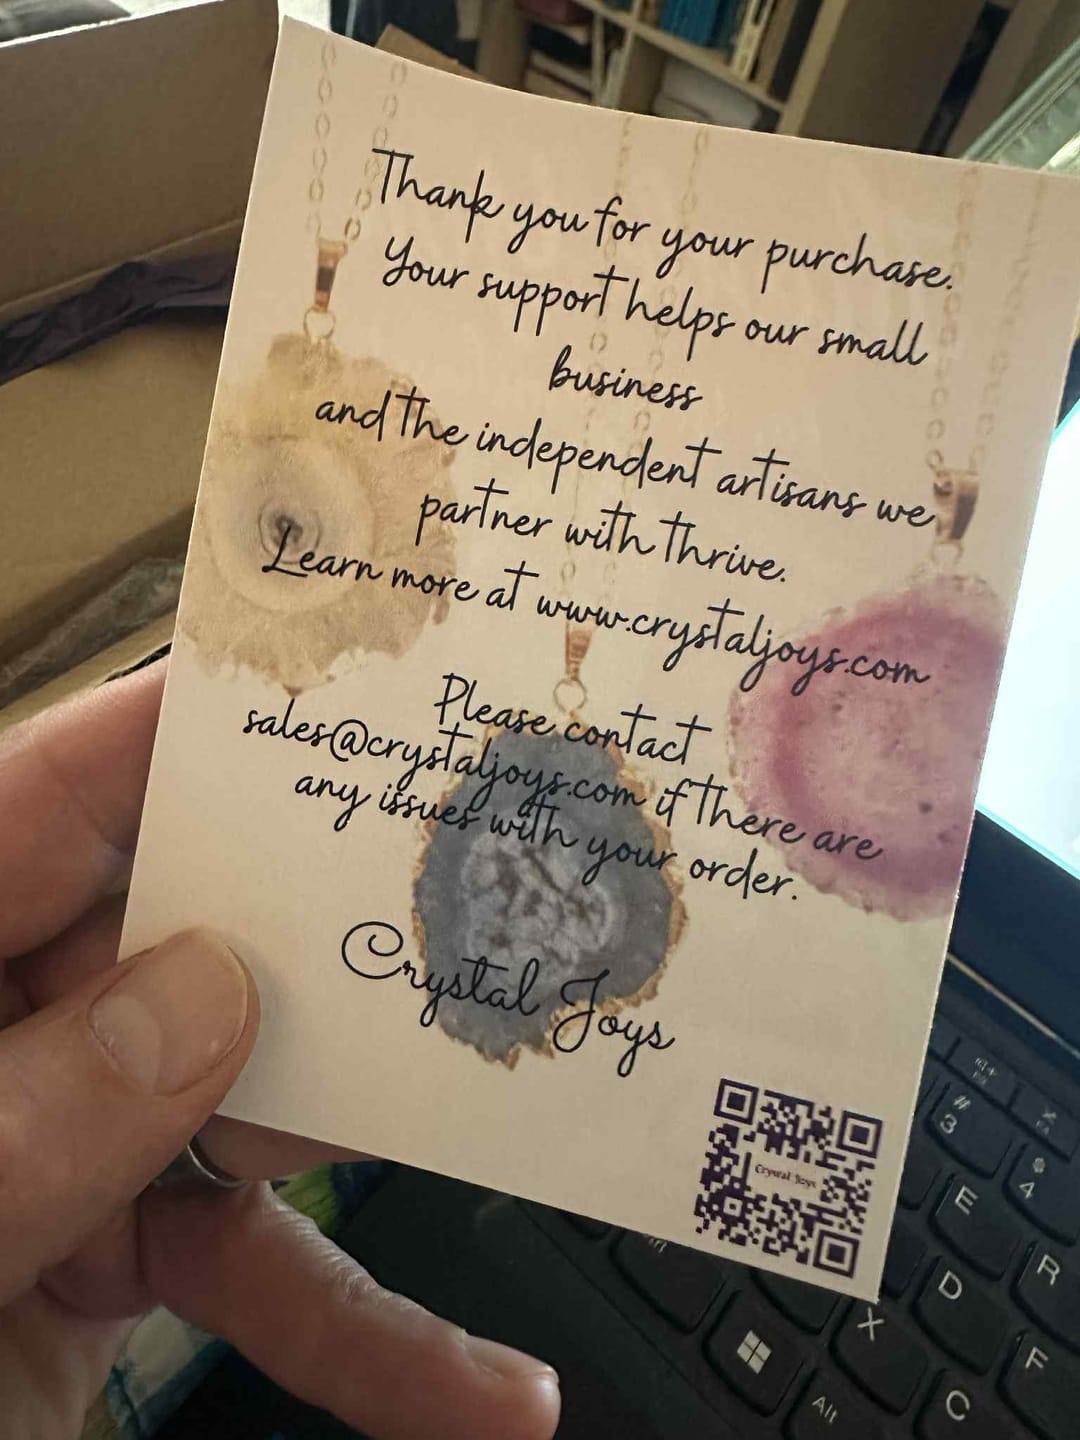 Thank you for your purchase.
Your support helps our small
business
and the independent artisans we
partner with thrive.
Learn more at www.crystaljoys.com
Please contact
sales@crystaljoys.com if there are
any issues with your order.
Crystal Joys
Crystal Joys
#
3
4
E
R
D
F
X
C
Alt